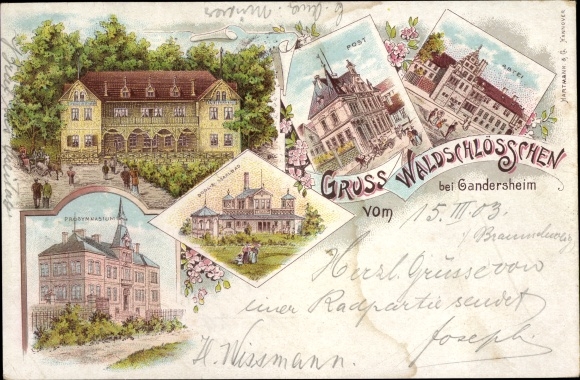 POST
ABTEI
HARTMANN A. G. HANNOVER
GRUSS
VOM
WALDSCHLÖSSCHEN
bei Gandersheim
PROGYMNASIUM
15. III 03
Herzl. Grüsse von
einer Radpartie sendet
Joseph.
H. Wissmann.